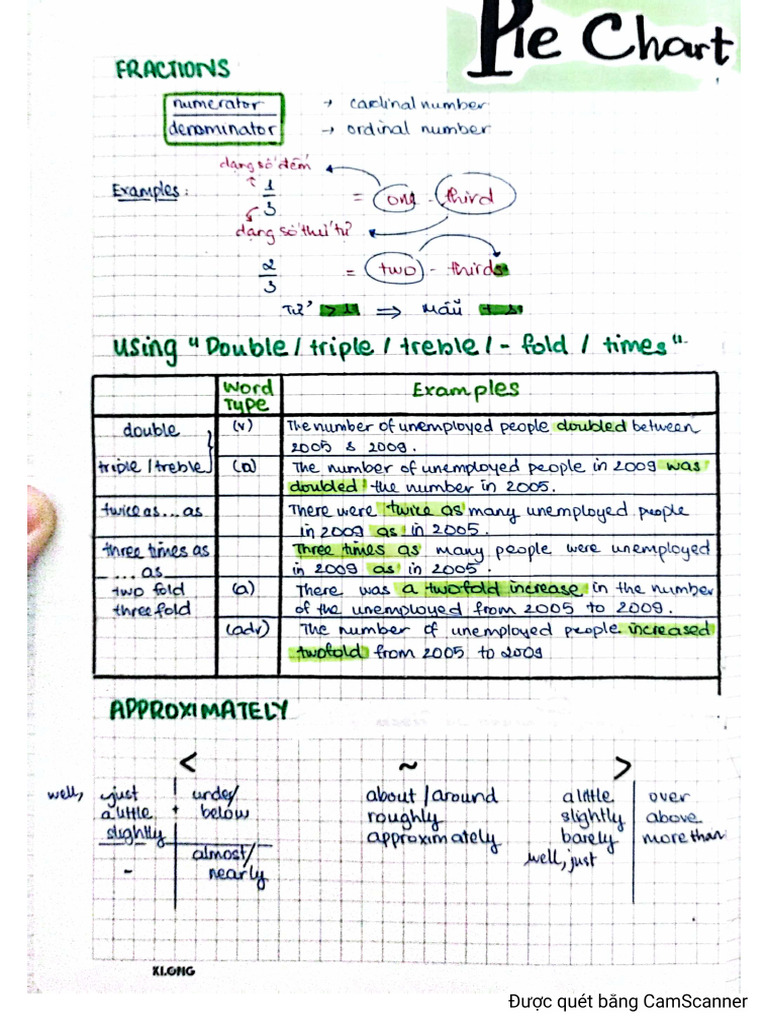 Pie Chart
FRACTIONS
numerator → cardinal number
denominator → ordinal number
dạng số đếm
Examples: 1/3 = one - third
dạng số thứ tự
2/3 = two - thirds
Tử > 1 ⇒ Mẫu + s
Using "Double / triple / treble / - fold / times"
Word Type
Examples
double
(v)
The number of unemployed people doubled between
2005 & 2009.
triple / treble
(a)
The number of unemployed people in 2009 was
doubled the number in 2005.
twice as...as
There were twice as many unemployed people
in 2009 as in 2005.
three times as
....as
Three times as many people were unemployed
in 2009 as in 2005.
two fold
three fold
(a)
There was a twofold increase in the number
of the unemployed from 2005 to 2009.
(adv)
The number of unemployed people increased
twofold from 2005 to 2009
APPROXIMATELY
< ~ >
well, just
a little
slightly
-
+
under/
below
almost/
nearly
about / around
roughly
approximately
a little
slightly
barely
well, just
over
above
more than
KLONG
Được quét bằng CamScanner